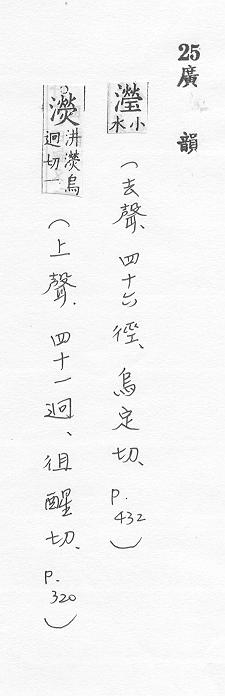 25廣韻
瀅小水(去聲、四十六徑、烏定切、p.432)
濙汫濙烏迥切一(上聲、四十一迥、徂醒切、p.320)